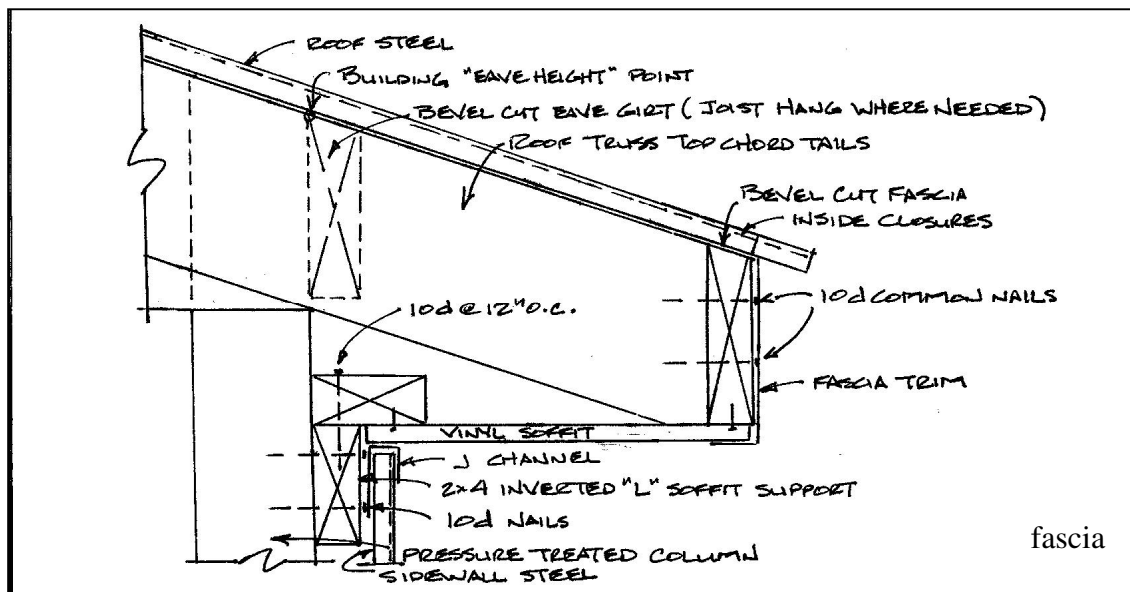 ROOF STEEL
BUILDING "EAVE HEIGHT" POINT
BEVEL CUT EAVE GIRT (JOIST HANG WHERE NEEDED)
ROOF TRUSS TOP CHORD TAILS
BEVEL CUT FASCIA
INSIDE CLOSURES
10d @ 12" O.C.
10d COMMON NAILS
FASCIA TRIM
VINYL SOFFIT
J CHANNEL
2x4 INVERTED "L" SOFFIT SUPPORT
10d NAILS
PRESSURE TREATED COLUMN
SIDEWALL STEEL
fascia